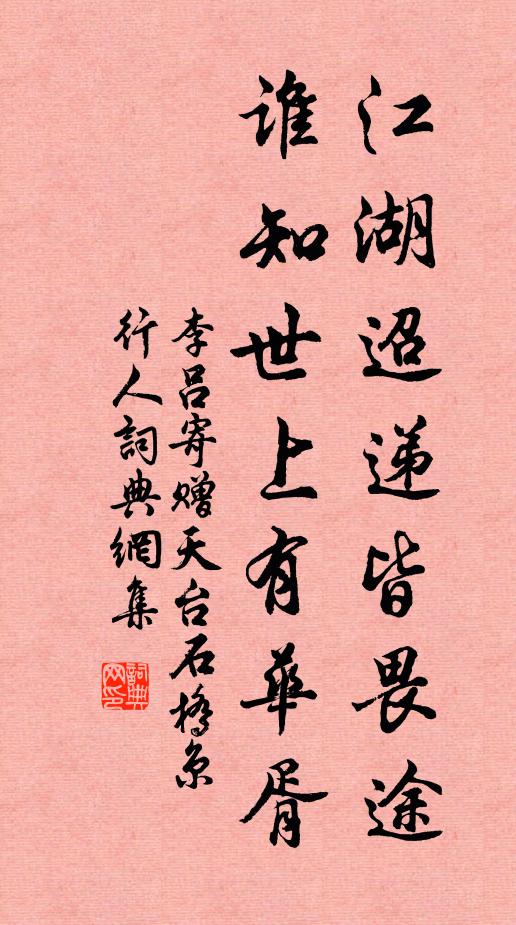 江湖迢递皆畏途
谁知世上有华胥
李吕寄赠天台石桥京
行人詞典網集
詞典
网印